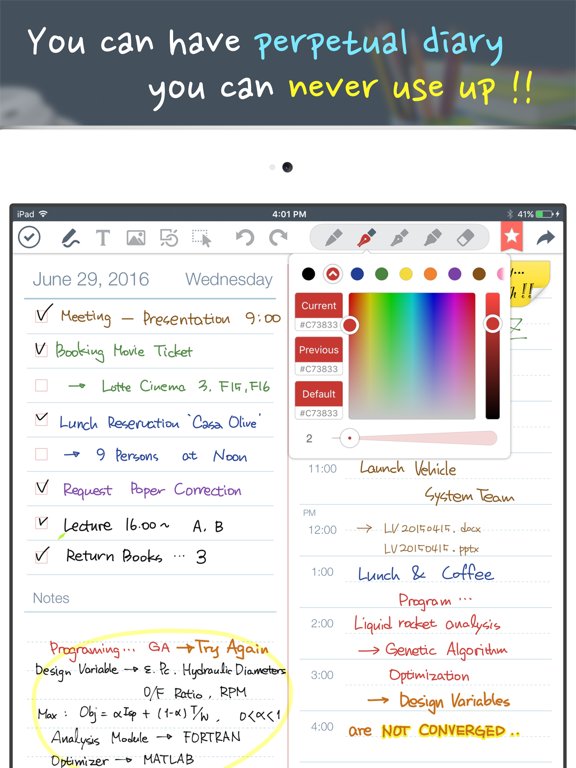 You can have perpetual diary
you can never use up !!
iPad
4:01 PM
41%
T
June 29, 2016
Wednesday
Meeting — Presentation 9:00
Booking Movie Ticket
→ Lotte Cinema 3, F15, F16
Lunch Reservation 'Casa Olive'
→ 9 Persons at Noon
Request Paper Correction
Lecture 16:00~ A, B
Return Books ... 3
Notes
Programing... GA → Try Again
Design Variable → ε. Pc. Hydraulic Diameters
O/F Ratio, RPM
Max : Obj = αIsp + (1-α) T/W, 0<α<1
Analysis Module → FORTRAN
Optimizer → MATLAB
Current
#C73833
Previous
#C73833
Default
#C73833
2
11:00 Launch Vehicle
System Team
PM
12:00 → LV20150415.docx
LV20150415.pptx
1:00 Lunch & Coffee
Program ...
2:00 Liquid rocket analysis
→ Genetic Algorithm
3:00 Optimization
→ Design Variables
4:00 are NOT CONVERGED..